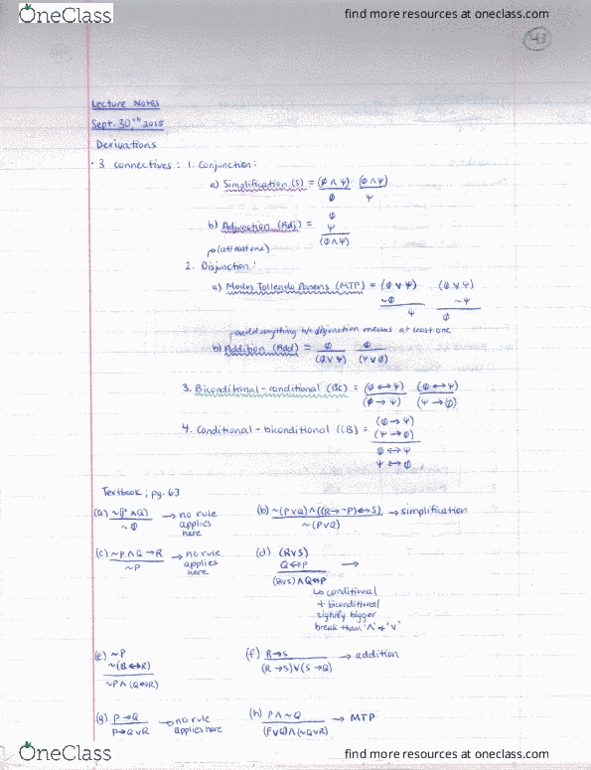 OneClass
find more resources at oneclass.com
43
Lecture Notes
Sept. 30,th 2015
Derivations
- 3 connectives : 1. Conjunction :
a) Simplification (S) = (ϕ ∧ ψ) (ϕ ∧ ψ)
ϕ ψ
b) Adjunction (Adj) = ϕ
ψ
(ϕ ∧ ψ)
(at least one)
2. Disjunction :
a) Modus Tollendo Ponens (MTP) = (ϕ ∨ ψ) (ϕ ∨ ψ)
~ϕ ~ψ
ψ ϕ
add anything b/c disjunction means at least one
b) Addition (Add) = ϕ ϕ
(ϕ ∨ ψ) (ψ ∨ ϕ)
3. Biconditional - conditional (BC) = (ϕ ↔ ψ) (ϕ ↔ ψ)
(ϕ → ψ) (ψ → ϕ)
4. Conditional - biconditional (CB) = (ϕ → ψ)
(ψ → ϕ)
ϕ ↔ ψ
ψ ↔ ϕ
Textbook ; pg. 63
(a) ~(P ∧ Q) → no rule applies here
~Q
(b) ~(P∨Q) ∧ ((R → ~P) ↔ S) → simplification
~(P∨Q)
(c) ~P ∧ Q → R → no rule applies here
~P
(d) (R∨S) 
Q ↔ P →
(R∨S) ∧ Q↔P
↳ conditional
+ biconditional
signify bigger
break than '∧' + '∨'
(e) ~P
~(Q ↔ R)
~P ∧ (Q↔R)
(f) R → S → addition
(R → S) ∨ (S → Q)
(g) P → Q → no rule applies here
P → Q∨R
(h) P ∧ ~Q → MTP
(P∨Q) ∧ (~Q∨R)
OneClass
find more resources at oneclass.com